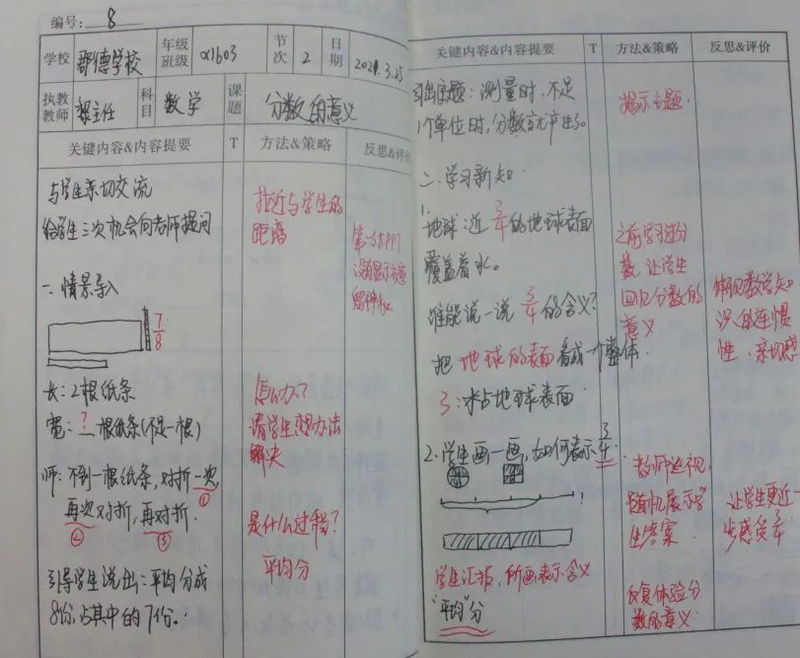 编号: 8
学校 郡德学校 年级班级 α1603 节次 2 日期 2021.3.25
执教教师 郭主任 科目 数学 课题 分数的意义
关键内容&内容提要 T 方法&策略 反思&评价
与学生亲切交流
给学生三次机会向老师提问
拉近与学生的
距离
没有显示主题
留神秘
一.情景导入
7/8
长:2根纸条
宽:?根纸条(不足一根)
怎么办?
请学生想办法
解决
师:不到一根纸条,对折一次,
①
再次对折,再对折.
② ③
是什么过程?
平均分
引导学生说出:平均分成
8份,占其中的7份.
关键内容&内容提要 T 方法&策略 反思&评价
引出主题:测量时,不足
1个单位时,分数就产生了.
揭示主题.
二.学习新知.
1.
地球:近3/4的地球表面
覆盖着水.
谁能说一说3/4的含义?
把地球的表面看成一个整体.
3:水占地球表面
之前学习过分
数,让学生
回忆分数的
意义
体现数学知
识的连惯
性,亲切感
2.学生画一画,如何表示3/4.
教师巡视,
随机展示学
生答案
让学生更近一
步感受3/4
学生汇报,所画表示含义
"平均"分
反复体验分
数的意义.